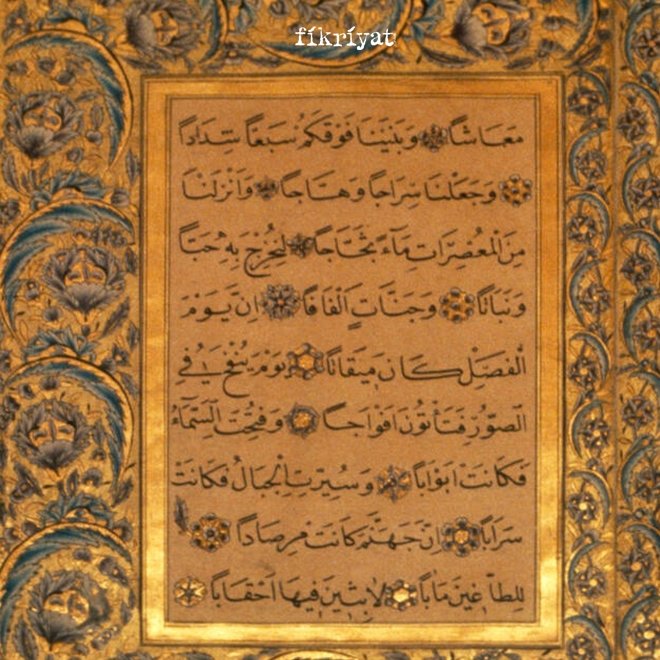 fíkríyat
مَعَاشًا وَبَنَيْنَا فَوْقَكُمْ سَبْعًا شِدَادًا
وَجَعَلْنَا سِرَاجًا وَهَّاجًا وَاَنْزَلْنَا
مِنَ الْمُعْصِرَاتِ مَاۤءً ثَجَّاجًا لِنُخْرِجَ بِهٖ حَبًّا
وَنَبَاتًا وَجَنَّاتٍ اَلْفَافًا اِنَّ يَوْمَ
الْفَصْلِ كَانَ مِيقَاتًا يَوْمَ يُنْفَخُ فِي
الصُّورِ فَتَأْتُونَ اَفْوَاجًا وَفُتِحَتِ السَّمَاۤءُ
فَكَانَتْ اَبْوَابًا وَسُيِّرَتِ الْجِبَالُ فَكَانَتْ
سَرَابًا اِنَّ جَهَنَّمَ كَانَتْ مِرْصَادًا
لِلطَّاغِينَ مَاٰبًا لَابِثِينَ فِيهَا اَحْقَابًا